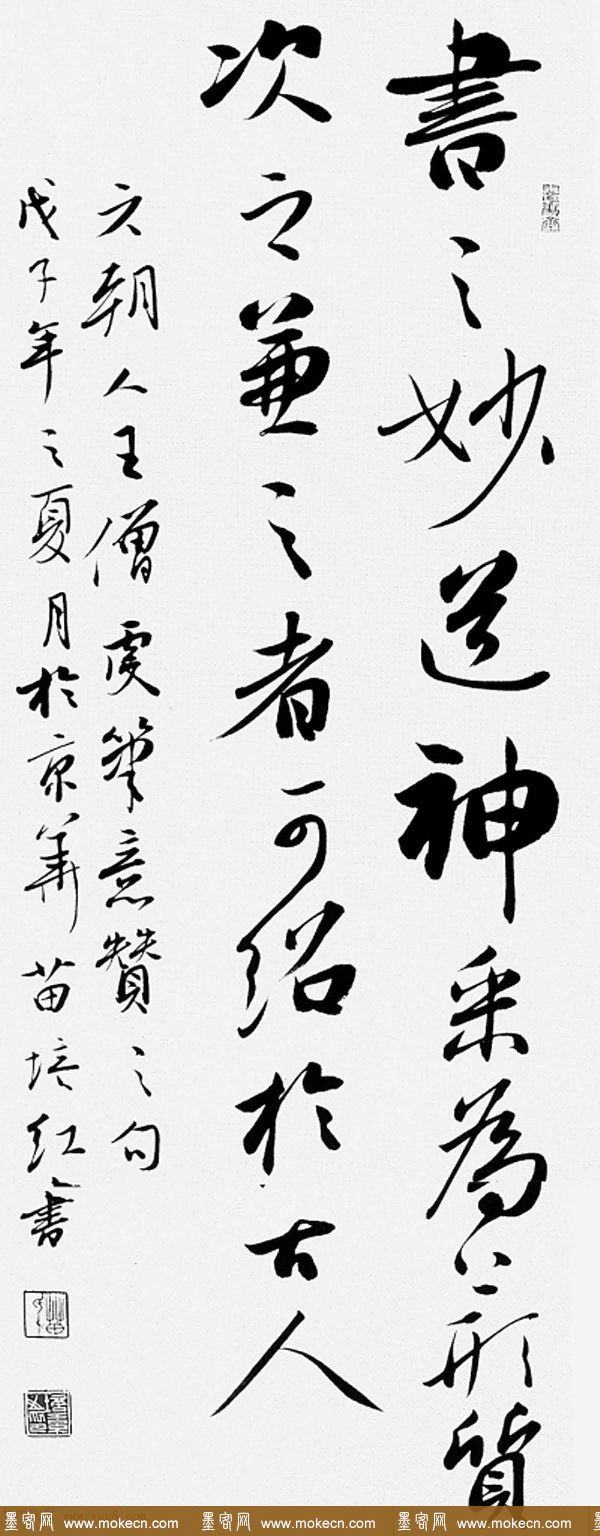 書之妙道神采為上形質
次之兼之者可紹於古人
六朝人王僧虔筆意贊之句
戊子年之夏月於京華苗培紅書
墨客网 www.mokecn.com 墨客网 www.mokecn.com 墨客网 www.mokecn.com 墨客网